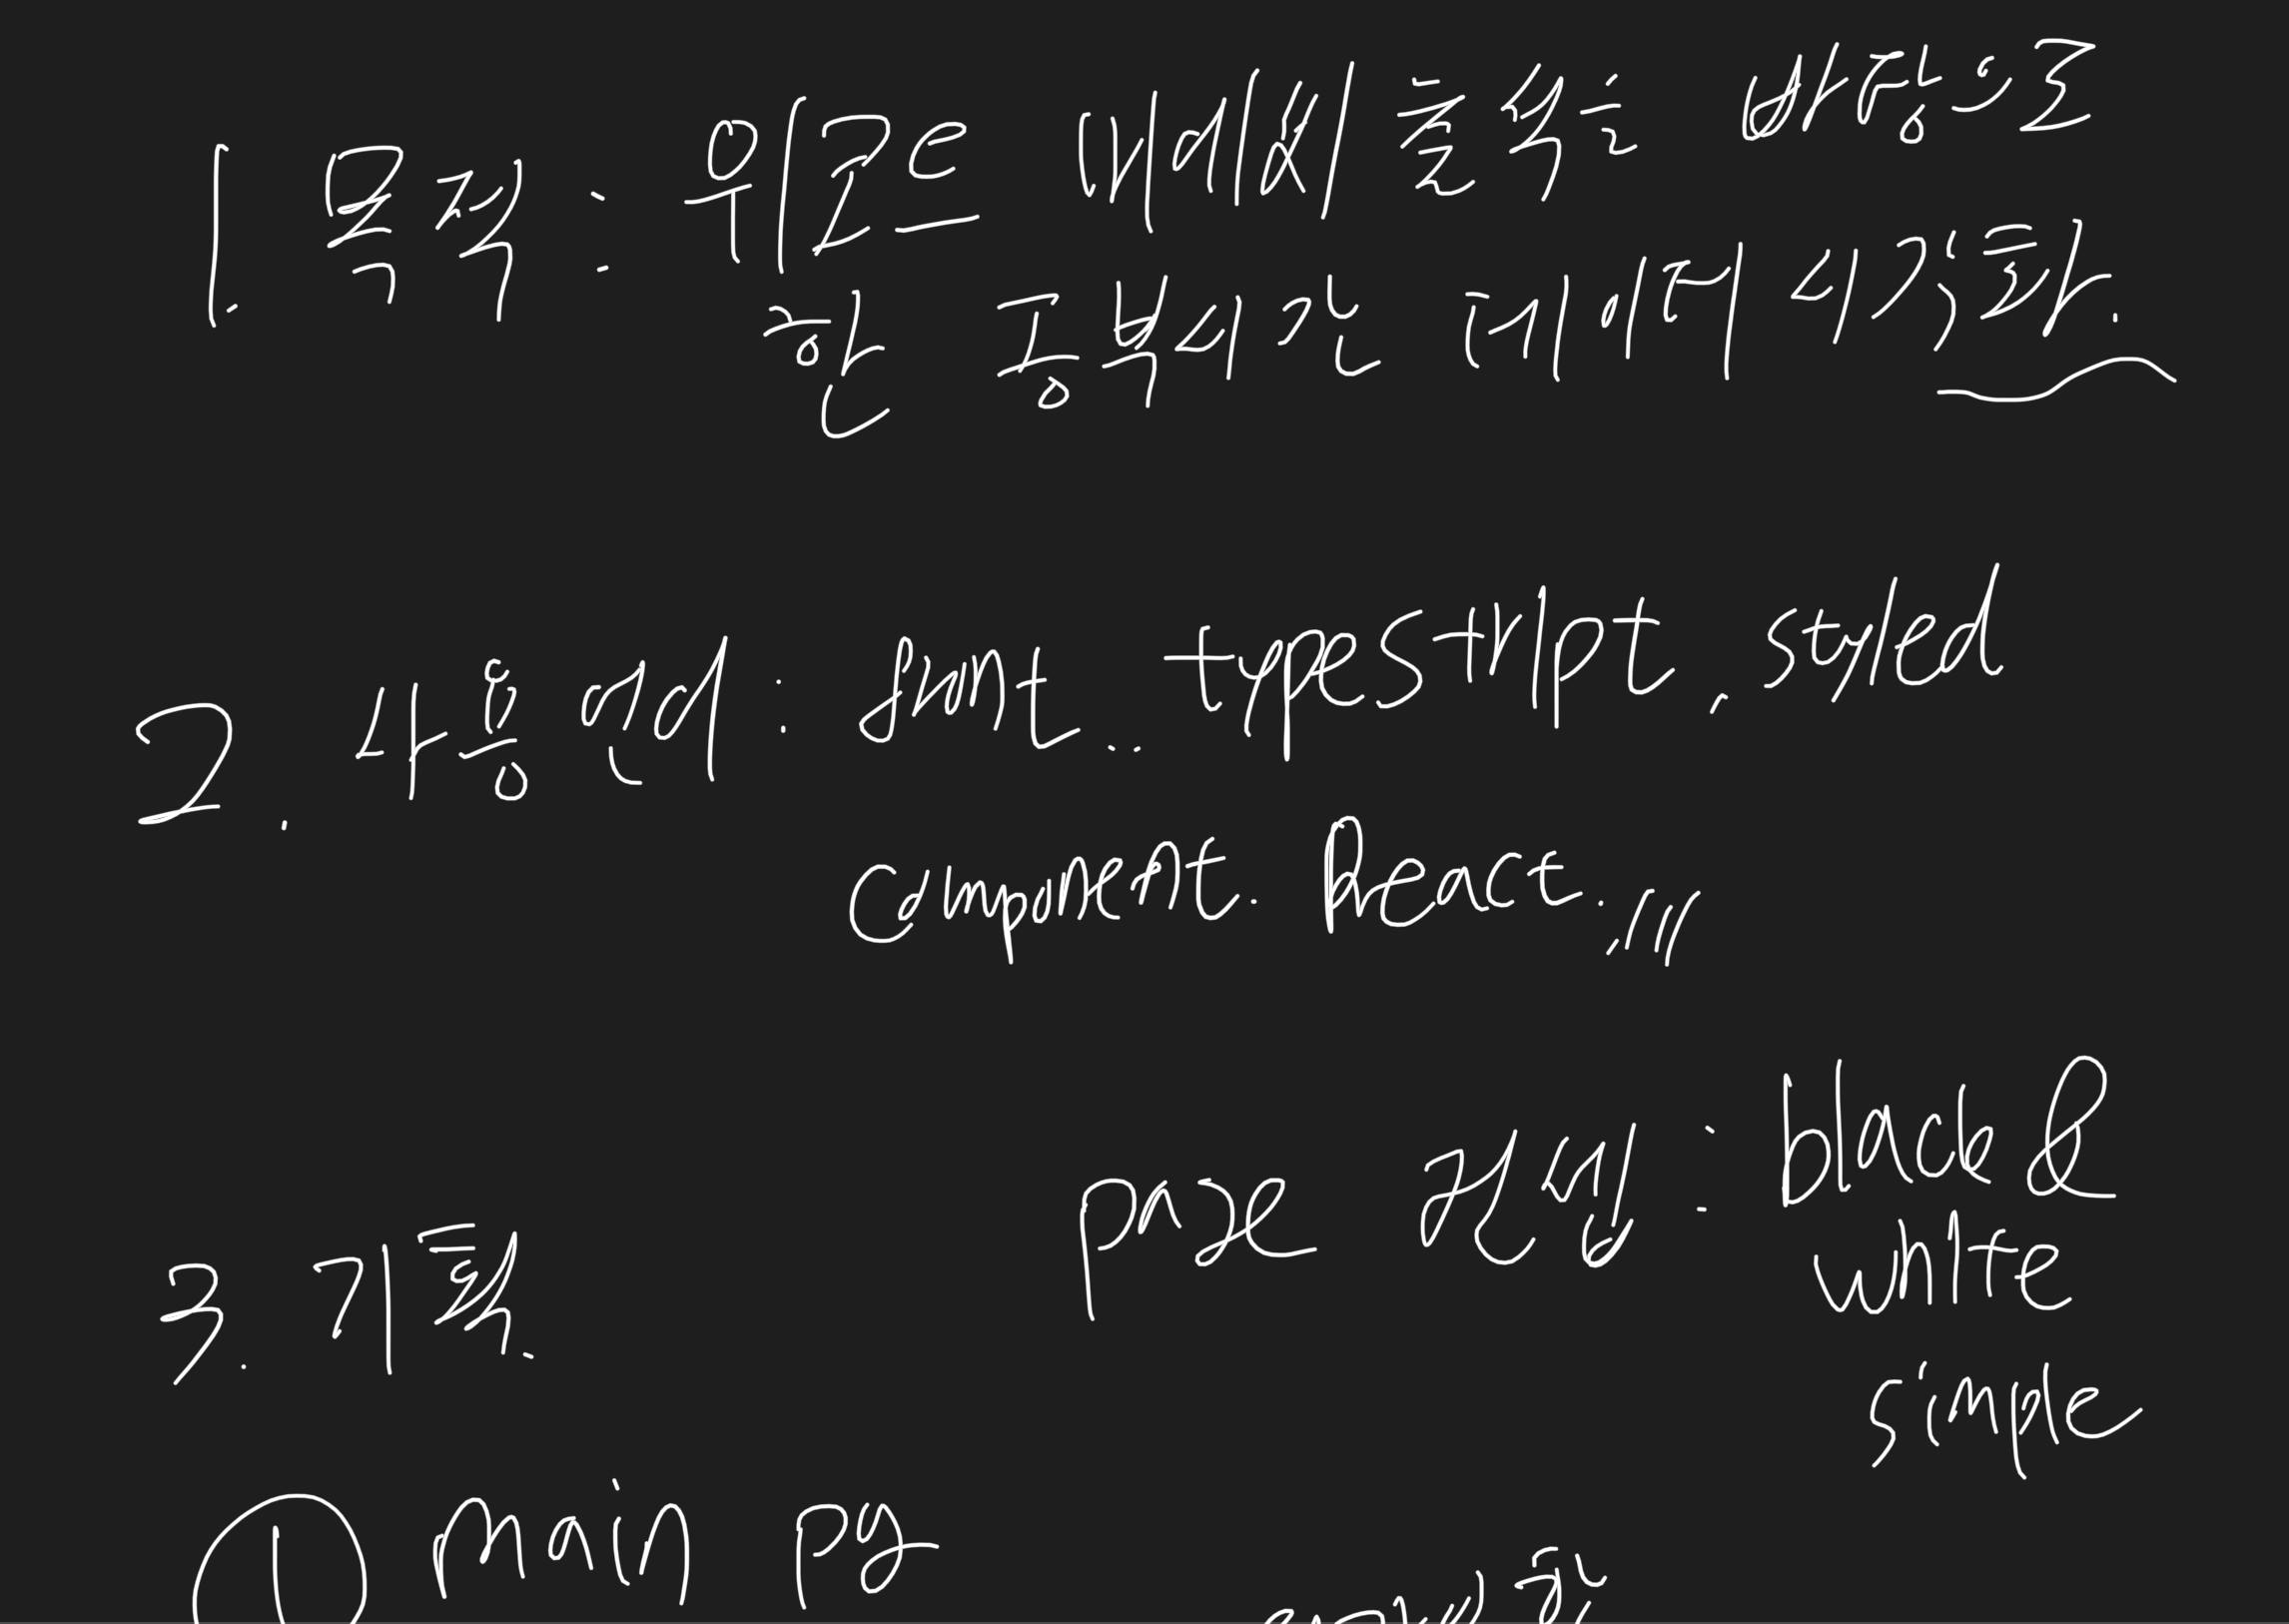 1. 목적 : 위코드 바탕으로
한 공부시간 데이터 시각화.
2. 사용 언어 : front.. typestript, styled
Component. React.,,,,
3. 기획. page 컨셉 : black &
white
simple
① main pg